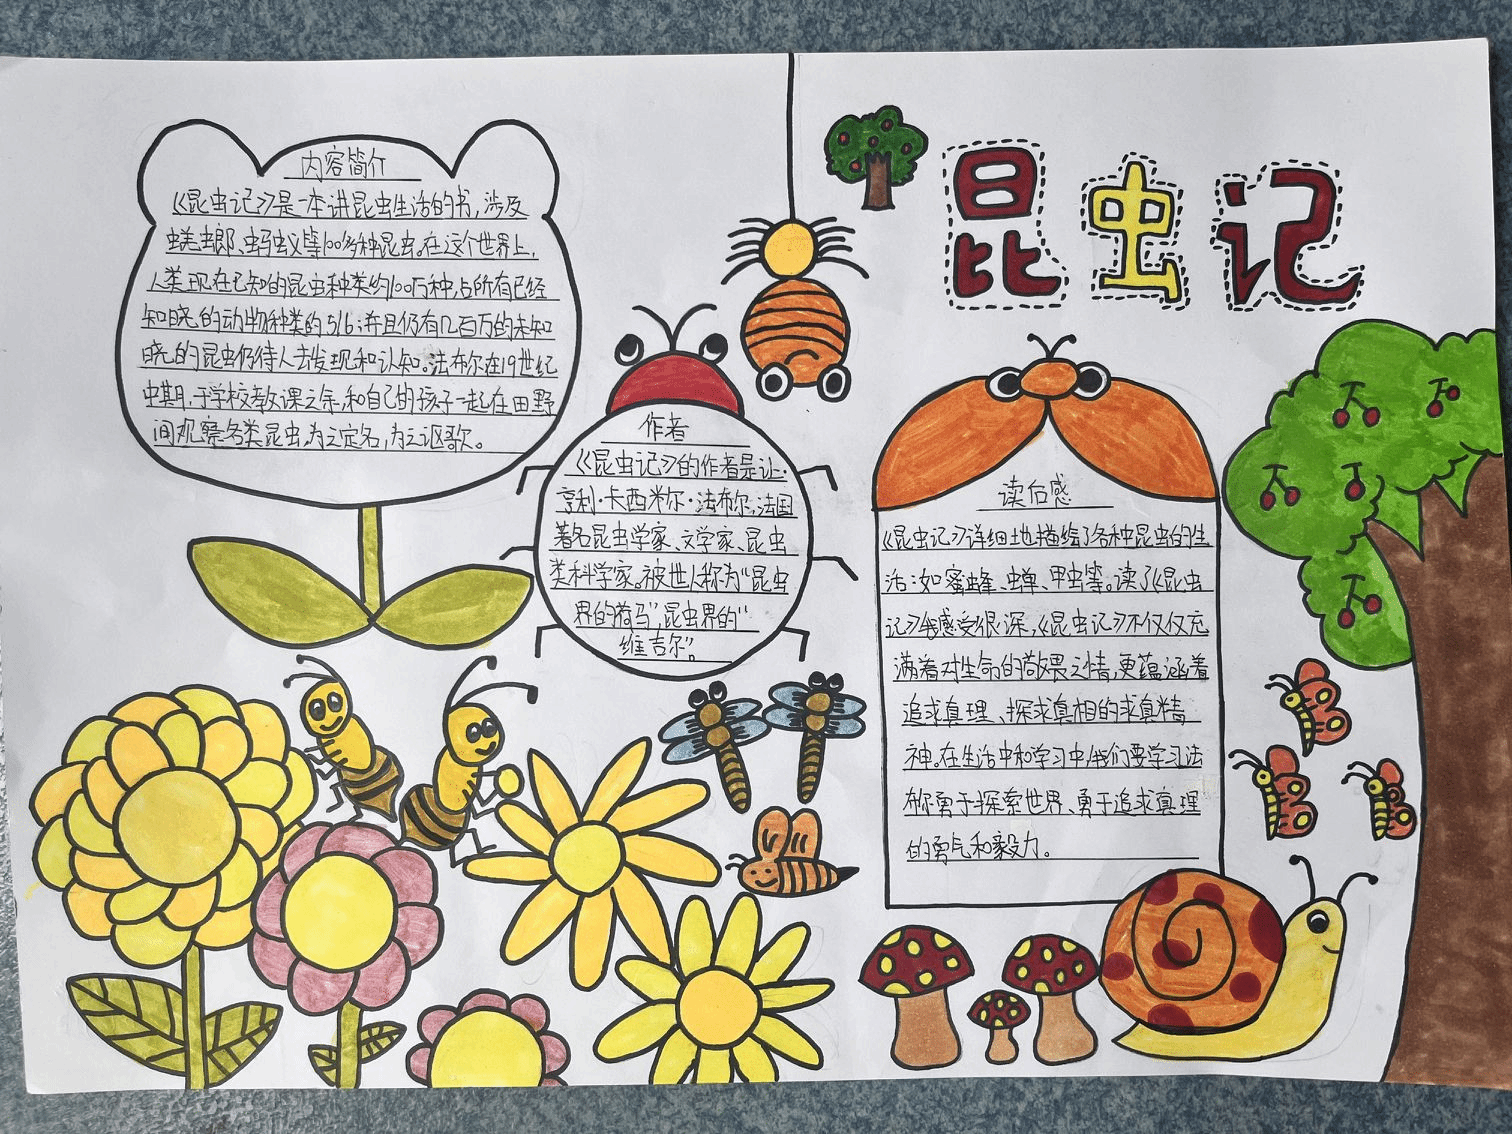 昆虫记
内容简介
《昆虫记》是一本讲昆虫生活的书，涉及
蜣螂、蚂蚁等100多种昆虫。在这个世界上，
人类现在已知的昆虫种类约100万种，占所有已经
知晓的动物种类的5/6；并且仍有几百万的未知
晓的昆虫仍待人去发现和认知。法布尔在19世纪
中期，于学校教课之余，和自己的孩子一起在田野
间观察各类昆虫，为之定名，为之讴歌。
作者
《昆虫记》的作者是让·
亨利·卡西米尔·法布尔，法国
著名昆虫学家、文学家、昆虫
类科学家。被世人称为“昆虫
界的荷马”，昆虫界的“
维吉尔”。
读后感
《昆虫记》详细地描绘了各种昆虫的生
活：如蜜蜂、蝉、甲虫等。读了《昆虫
记》我感受很深，《昆虫记》不仅仅充
满着对生命的敬畏之情，更蕴涵着
追求真理、探求真相的求真精
神。在生活中和学习中，我们要学习法
布尔勇于探索世界、勇于追求真理
的勇气和毅力。